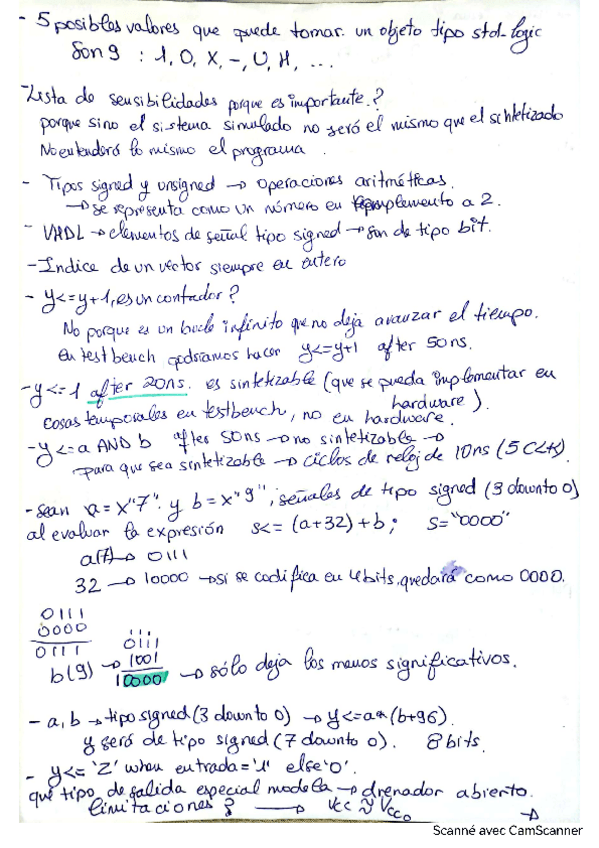 - 5 posibles valores que puede tomar un objeto tipo std_logic
Son 9 : 1, 0, X, -, U, H, ...
- Lista de sensibilidades porque es importante?
porque sino el sistema simulado no será el mismo que el sintetizado
No entenderá lo mismo el programa.
- Tipos signed y unsigned → operaciones aritméticas.
→ se representa como un número en complemento a 2.
- VHDL → elementos de señal tipo signed → son de tipo bit.
- Indice de un vector siempre en entero
- y<=y+1, es un contador?
No porque es un bucle infinito que no deja avanzar el tiempo.
en test bench podriamos hacer y<=y+1 after 50ns.
- y<=1 after 20ns. es sintetizable (que se pueda implementar en
hardware).
cosas temporales en testbench, no en hardware.
- y<=a AND b after 50ns → no sintetizable →
para que sea sintetizable → ciclos de reloj de 10ns (5 CLK)
- Sean a=x"7" y b=x"9", señales de tipo signed (3 downto 0)
al evaluar la expresión s<= (a+32)+b; s="0000"
a(7) → 0111
32 → 10000 → si se codifica en 4bits, quedará como 0000.
0111
0000
0111
b(9) →
0111
1001
10000 → sólo deja los menos significativos.
- a, b → tipo signed (3 downto 0) → y<=a*(b+96).
y será de tipo signed (7 downto 0). 8 bits.
- y<= 'Z' when entrada='1' else '0'.
qué tipo de salida especial modela → drenador abierto.
limitaciones? → Vcc
Scanné avec CamScanner